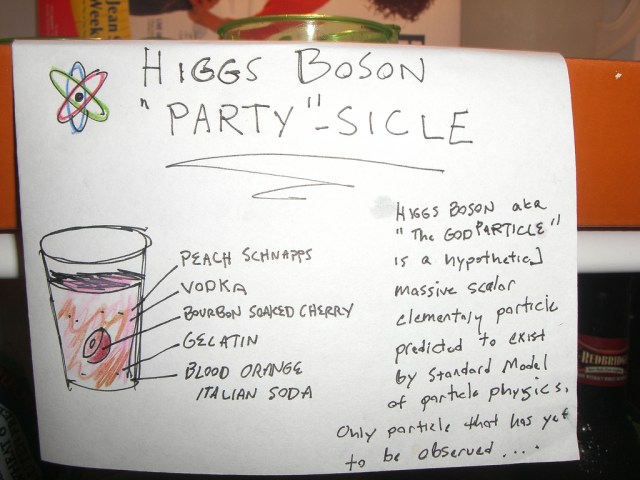 Jean
Week
HIGGS BOSON
"PARTY"-SICLE
PEACH SCHNAPPS
VODKA
BOURBON SOAKED CHERRY
GELATIN
BLOOD ORANGE
ITALIAN SODA
HIGGS BOSON aka
"The GOD PARTICLE"
is a hypothetical
massive scalar
elementary particle
predicted to exist
by Standard Model
of particle physics.
Only particle that has yet
to be observed....
REDBRIDGE